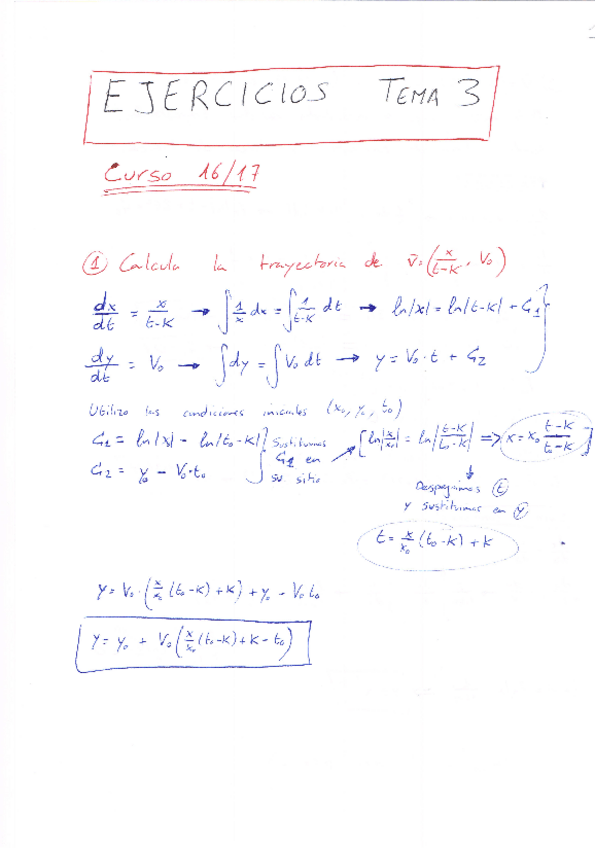 EJERCICIOS TEMA 3
Curso 16/17
① Calcula la trayectoria de v̄=(x/(t-k), V₀)
dx/dt = x/(t-k) → ∫ 1/x dx = ∫ 1/(t-k) dt → ln|x| = ln|t-k| + C₁
dy/dt = V₀ → ∫dy = ∫V₀ dt → y = V₀·t + C₂
Utilizo las condiciones iniciales (x₀, y₀, t₀)
C₁ = ln|x₀| - ln|t₀-k| Sustituimos
C₁ en
su sitio
C₂ = y₀ - V₀·t₀
[ln|x/x₀| = ln|(t-k)/(t₀-k)| => x = x₀ (t-k)/(t₀-k)]
Despejamos ⓣ
y sustituimos en ⓨ
t = x/x₀ (t₀-k) + k
y = V₀·(x/x₀ (t₀-k) + k) + y₀ - V₀t₀
y = y₀ + V₀(x/x₀ (t₀-k) + k - t₀)